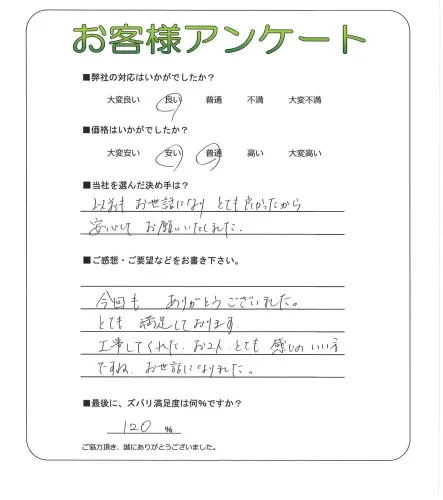 お客様アンケート
■弊社の対応はいかがでしたか？
大変良い 良い 普通 不満 大変不満
■価格はいかがでしたか？
大変安い 安い 普通 高い 大変高い
■当社を選んだ決め手は？
以前も お世話になり とても良かったから
安心して お願いいたしました.
■ご感想・ご要望などをお書き下さい。
今回も ありがとうございました。
とても 満足しております.
工事してくれた、お2人、とても 感じのいい方
ですね、お世話になりました。
■最後に、ズバリ満足度は何%ですか？
120 %
ご協力頂き、誠にありがとうございました。